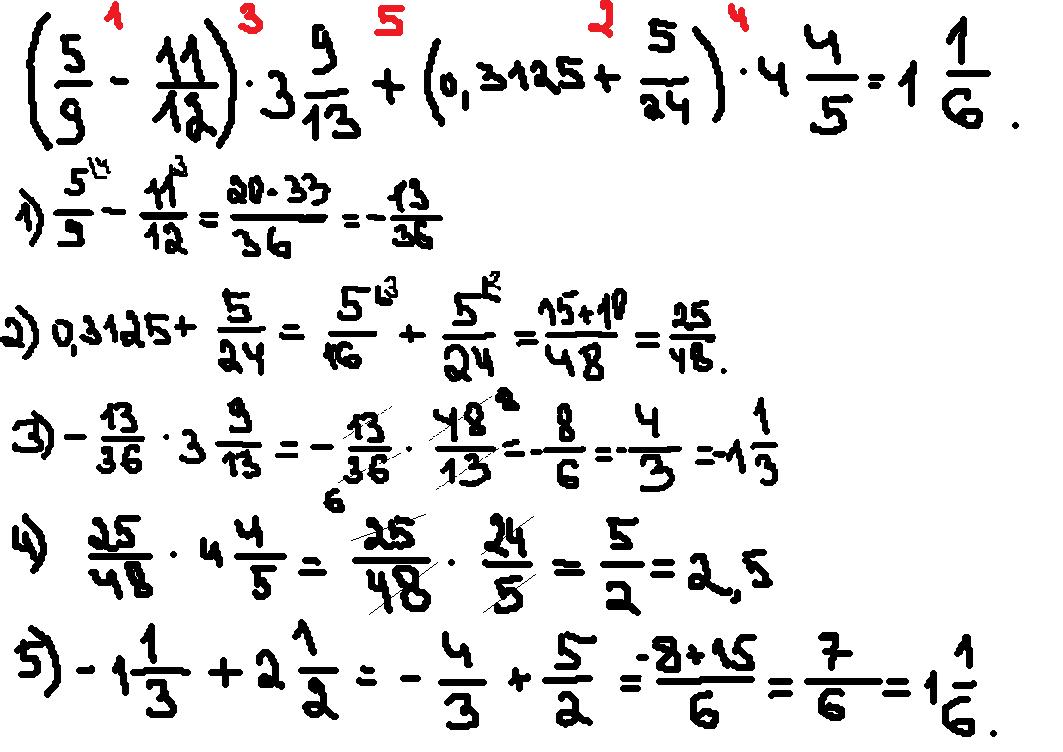 1 3 5 2 4
(5/9 - 11/12) · 3 9/13 + (0,3125 + 5/24) · 4 4/5 = 1 1/6.
1) 5/9 - 11/12 = 20-33/36 = -13/36
2) 0,3125 + 5/24 = 5/16 + 5/24 = 15+10/48 = 25/48.
3) -13/36 · 3 9/13 = -13/36 · 48/13 = -8/6 = -4/3 = -1 1/3
4) 25/48 · 4 4/5 = 25/48 · 24/5 = 5/2 = 2,5
5) -1 1/3 + 2 1/2 = -4/3 + 5/2 = -8+15/6 = 7/6 = 1 1/6.